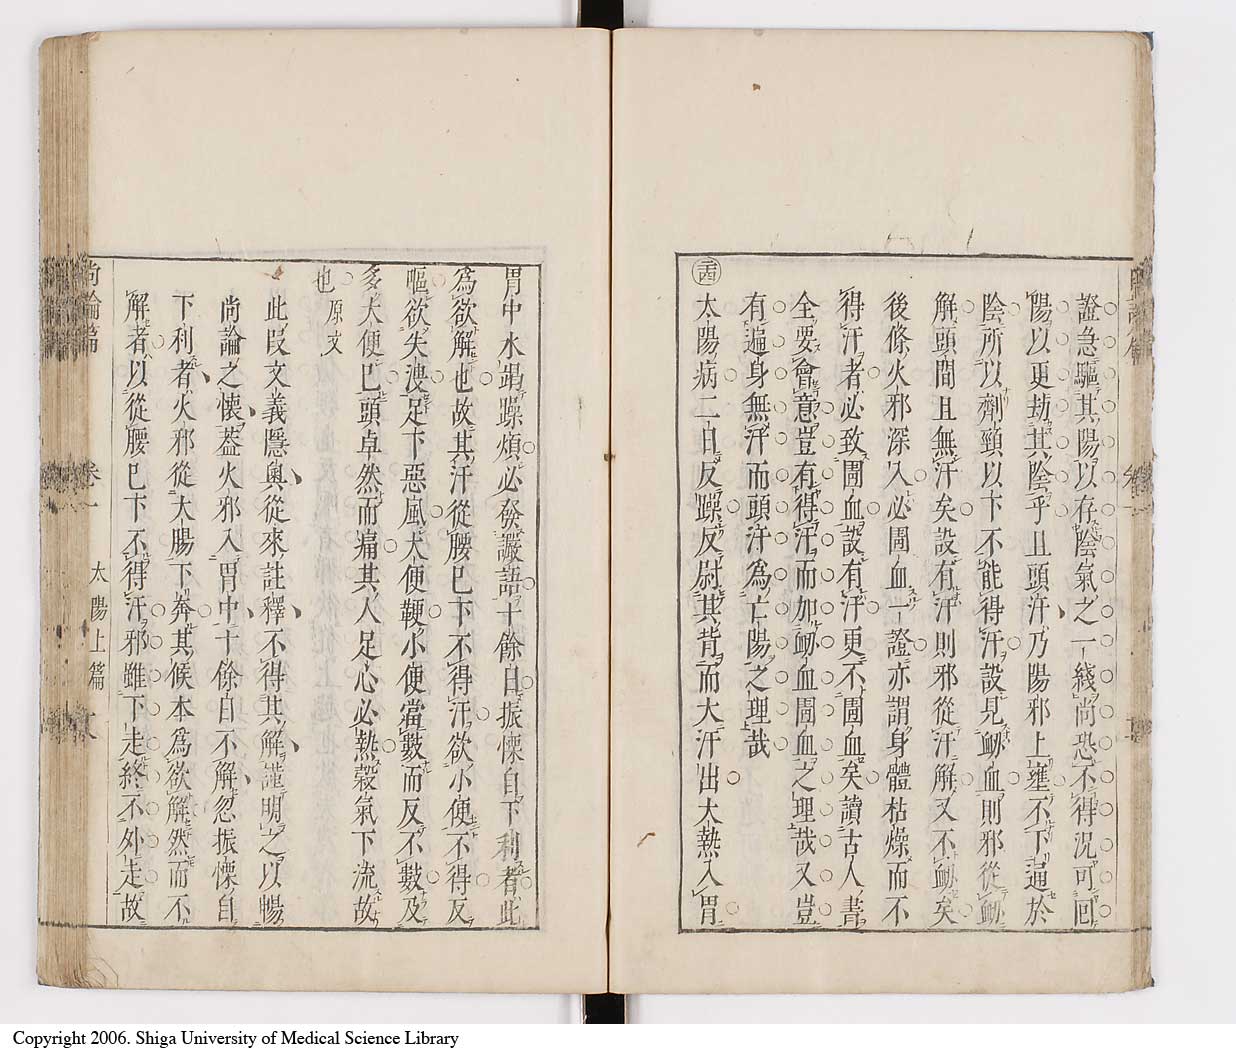 證急驅其陽以存陰氣之一綫尚恐不得況可回
陽以更劫其陰乎且頭汗乃陽邪上壅不下逼於
陰所以劑頸以下不能得汗設見衂血則邪從衂
解頭間且無汗矣設有汗則邪從汗解又不衂矣
後條火邪深入必圊血一證亦謂身體枯燥而不
得汗者必致圊血設有汗更不圊血矣讀古人書
全要會意豈有得汗而加衂血圊血之理哉又豈
有遍身無汗而頭汗為亡陽之理哉
太陽病二日反躁反尉其背而大汗出大熱入胃
胃中水竭躁煩必發讝語十餘日振慄自下利者此
為欲解也故其汗從腰已下不得汗欲小便不得反
嘔欲失溲足下惡風大便鞕小便當數而反不數及
多大便已頭卓然而痛其人足心必熱穀氣下流故
也 原文
此叚文義隱奧從來註釋不得其解謹明之以暢
尚論之懷葢火邪入胃中十餘日不解忽振慄自
下利者火邪從大腸下奔其候本為欲解然而不
解者以從腰已下不得汗邪雖下走終不外走故
尚論篇 卷一 太陽上篇
Copyright 2006. Shiga University of Medical Science Library